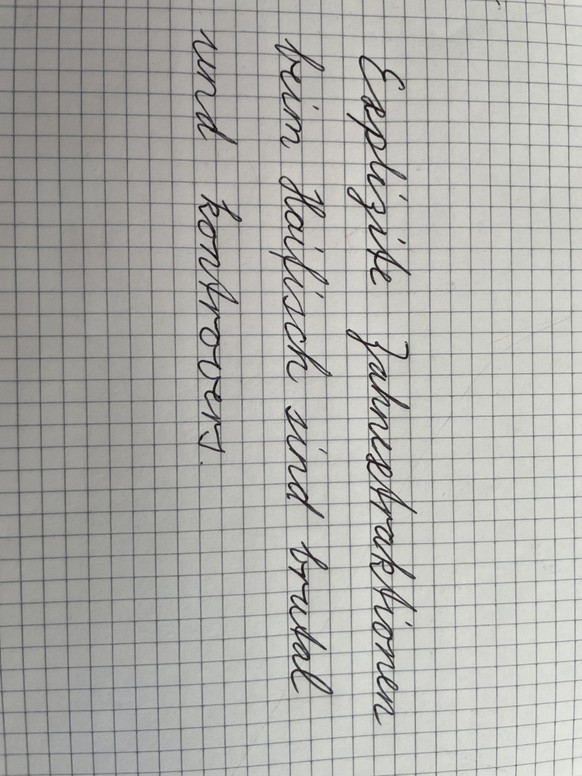 Explizite Zahnextraktionen
beim Haifisch sind brutal
und kontrovers.